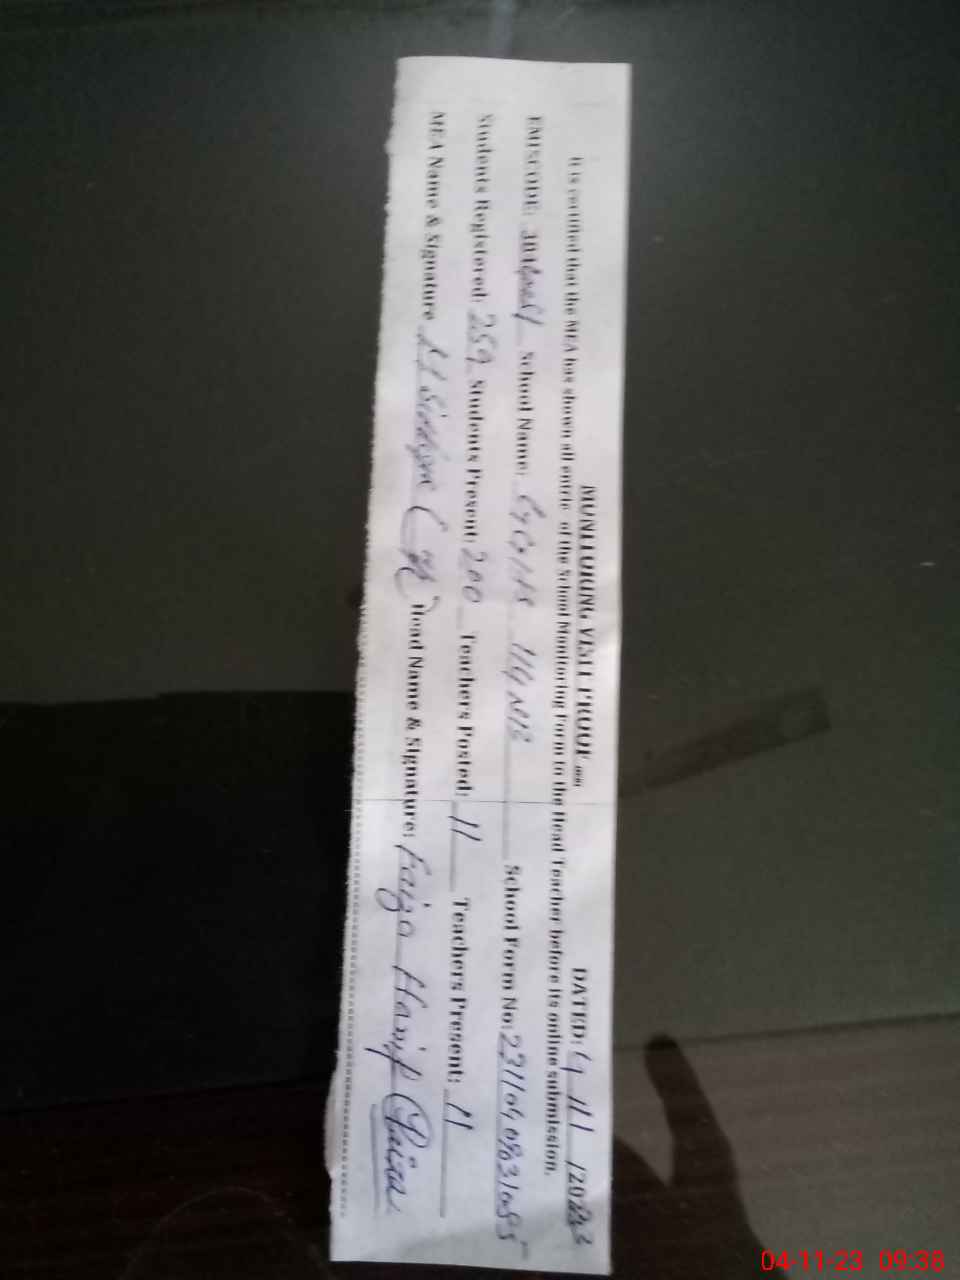 MONITORING VISIT PROOF
DATED: 4 11 /2023
It is certified that the MEA has shown all entrie of the School Monitoring Form to the Head Teacher before its online submission.
EMISCODE: School Name: School Form No: 23110408310
Students Registered: 259 Students Present: 200 Teachers Posted: 11 Teachers Present: 11
MEA Name & Signature Head Name & Signature: Faiza Hanif Faiza
04-11-23 09:38